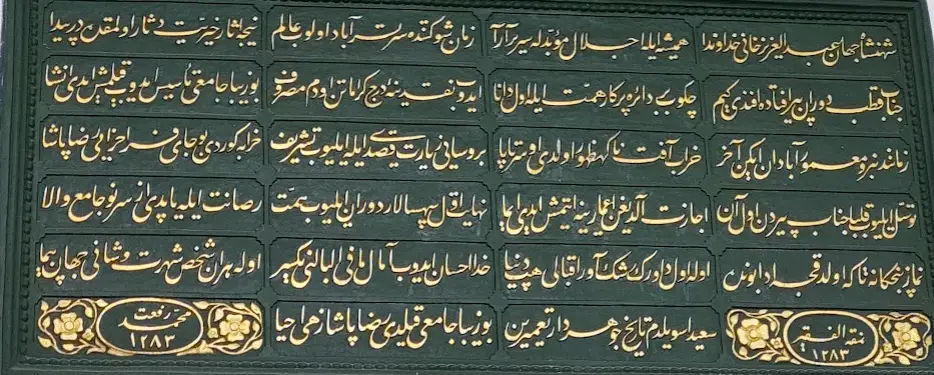 شهنشاه جهان عبد العزیز خانی خداوندا همیشه ایله اجلال مؤبدله سریر آرا زمان شوکتنده سرتسر آباد اولوب عالم نتیجه آثار خیریت دثار اولمقده در پیدا
جناب قطب دوران پیر افتاده افندی کیم چکوب دائره پرکار همت ایله اول دانا ایدوب نقدینه درج کراماتن اودم مصروف بو زیبا جامعی تأسیس ایدوب قیلمش ایدی انشا
زمانندنبرو معمور آبادان ایکن آخر خراب آفت ناکهظهور اولدی سرتاپا بروسایی زیارت قصدی ایله ایلیوب تشریف خرابه کوردی بو جای فرح افزایی رضا پاشا
توسل ایلیوب قلبا جناب پیردن اول آن اجازت آلدیغن اعمارینه ایتمش ایدی ایما نهایت اول سپهسالار دوران ایلیوب همت رصانت ایله یاپدی از سر نو جامع والا
نماز پنجکانه تاکه اولدقجه ادا بوندن اوله اول داورک رشک آور اقبالی هپ دنیا خدا احسان ایدوب آمال مافی البالنی یکسر اوله هر آن شخص شهرت و شانی جهان پیما
نمقه الفقیر ١٢٨٣ سعیدا سویلدم تاریخ جوهردار تعمیرین بو زیبا جامعی قیلدی رضا پاشا زهی احیا محمد رفعت ١٢٨٣